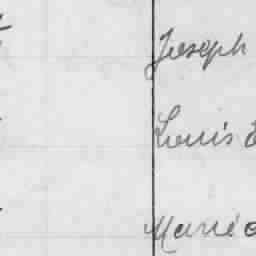 Joseph
Louis E
Marie